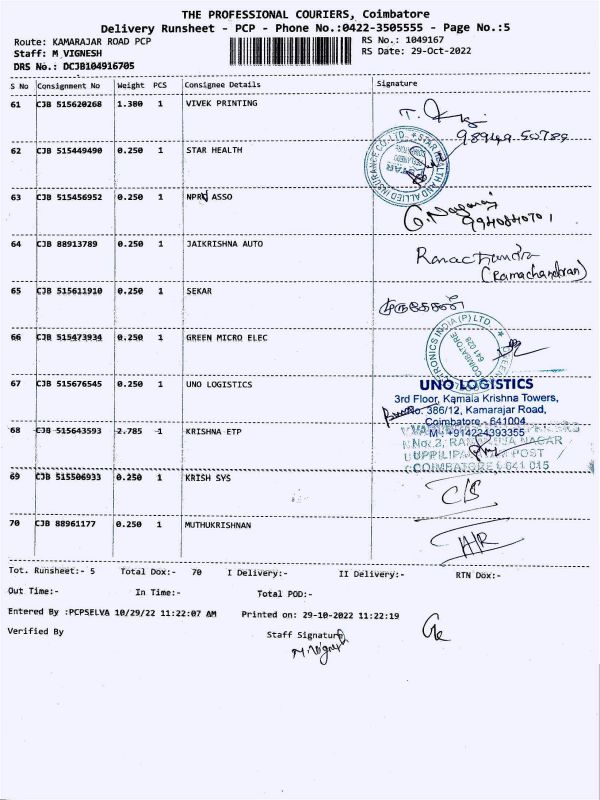 THE PROFESSIONAL COURIERS, Coimbatore
Delivery Runsheet - PCP - Phone No.:0422-3505555 - Page No.:5
Route: KAMARAJAR ROAD PCP
RS No.: 1049167
Staff: M VIGNESH
RS Date: 29-Oct-2022
DRS No.: DCJB104916705
S No Consignment No Weight PCS Consignee Details Signature
61 CJB 515620268 1.380 1 VIVEK PRINTING
62 CJB 515449490 0.250 1 STAR HEALTH
STAR HEALTH AND ALLIED INSURANCE CO. LTD.
63 CJB 515456952 0.250 1 ASSO
G. Nagaraj
9940840701
64 CJB 88913789 0.250 1 JAIKRISHNA AUTO
Ramachandra
(Ramachandran)
65 CJB 515611910 0.250 1 SEKAR
முருகேசன்
66 CJB 515473934 0.250 1 GREEN MICRO ELEC
INDIA (P) LTD
COIMBATORE
641 028
67 CJB 515676545 0.250 1 UNO LOGISTICS
UNO LOGISTICS
3rd Floor, Kamala Krishna Towers,
No. 386/12, Kamarajar Road,
Coimbatore - 641004
M : +914224393355
68 CJB 515643593 2.785 1 KRISHNA ETP
No.2, NAGAR
POST
COIMBATORE - 641 015
69 CJB 515506933 0.250 1 KRISH SYS
C/S
70 CJB 88961177 0.250 1 MUTHUKRISHNAN
Tot. Runsheet:- 5 Total Dox:- 70 I Delivery:- II Delivery:- RTN Dox:-
Out Time:- In Time:- Total POD:-
Entered By :PCPSELVA 10/29/22 11:22:07 AM Printed on: 29-10-2022 11:22:19
Verified By Staff Signature
M. Vignesh